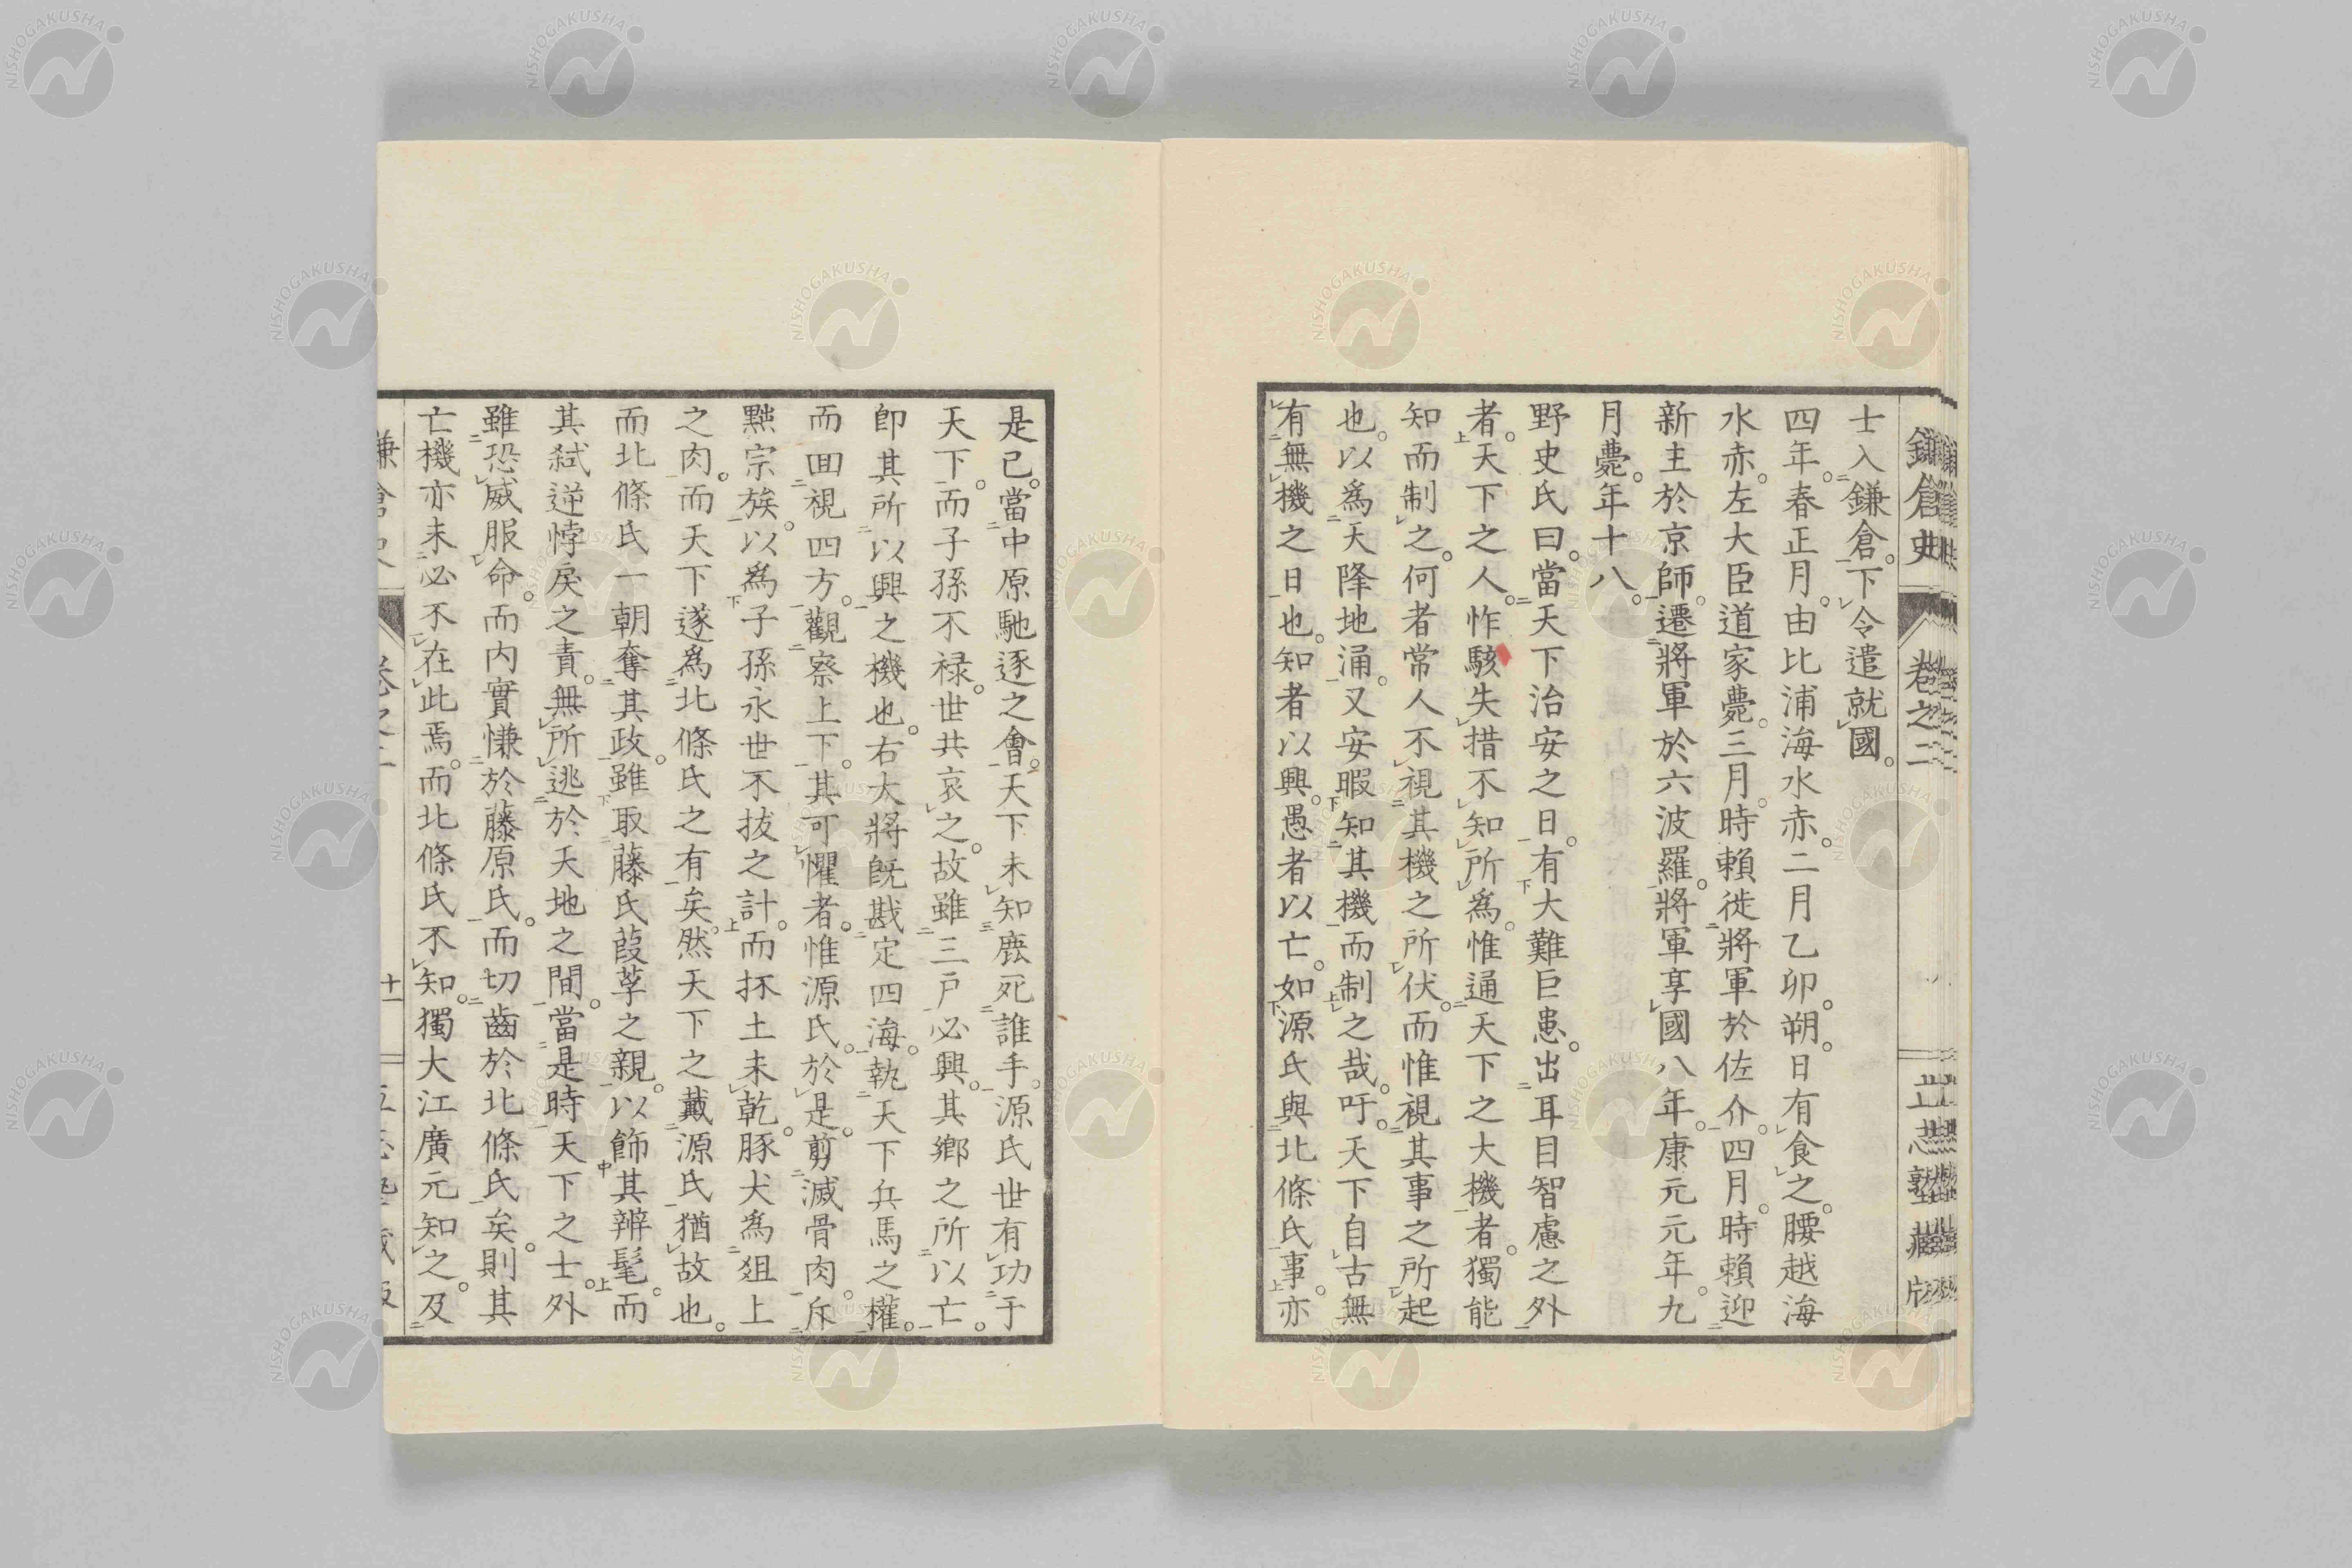 鎌倉史 卷之二 止止塾藏版
士入鎌倉。下令遣就國。
四年。春正月。由比浦海水赤。二月乙卯。朔。日有食之。腰越海
水赤。左大臣道家薨。三月。時賴徙將軍於佐介。四月。時賴迎
新主於京師。遷將軍於六波羅。將軍享國八年。康元元年。九
月薨。年十八。
野史氏曰。當天下治安之日。有大難巨患。出耳目智慮之外
者。天下之人。怍駭失措不知所爲。惟通天下之大機者。獨能
知而制之。何者常人不視其機之所伏。而惟視其事之所起
也。以爲天降地涌。又安暇知其機而制之哉。吁。天下自古無
有無機之日也。知者以興。愚者以亡。如源氏與北條氏事。亦
是已。當中原馳逐之會。天下未知鹿死誰手。源氏世有功于
天下。而子孫不祿。世共哀之。故雖三戶必興。其鄉之所以亡。
卽其所以興之機也。右大將旣戡定四海。執天下兵馬之權。
而回視四方。觀察上下。其可懼者。惟源氏。於是。剪滅骨肉。斥
黜宗族。以爲子孫永世不拔之計。而抔土未乾。豚犬爲俎上
之肉。而天下遂爲北條氏之有矣。然天下之戴源氏。猶故也。
而北條氏一朝奪其政。雖取藤氏葭莩之親。以飾其辨髦。而
其弑逆悖戾之責。無所逃於天地之間。當是時天下之士。外
雖恐威服命。而內實慊於藤原氏。而切齒於北條氏矣。則其
亡機亦未必不在此焉。而北條氏不知。獨大江廣元知之。及